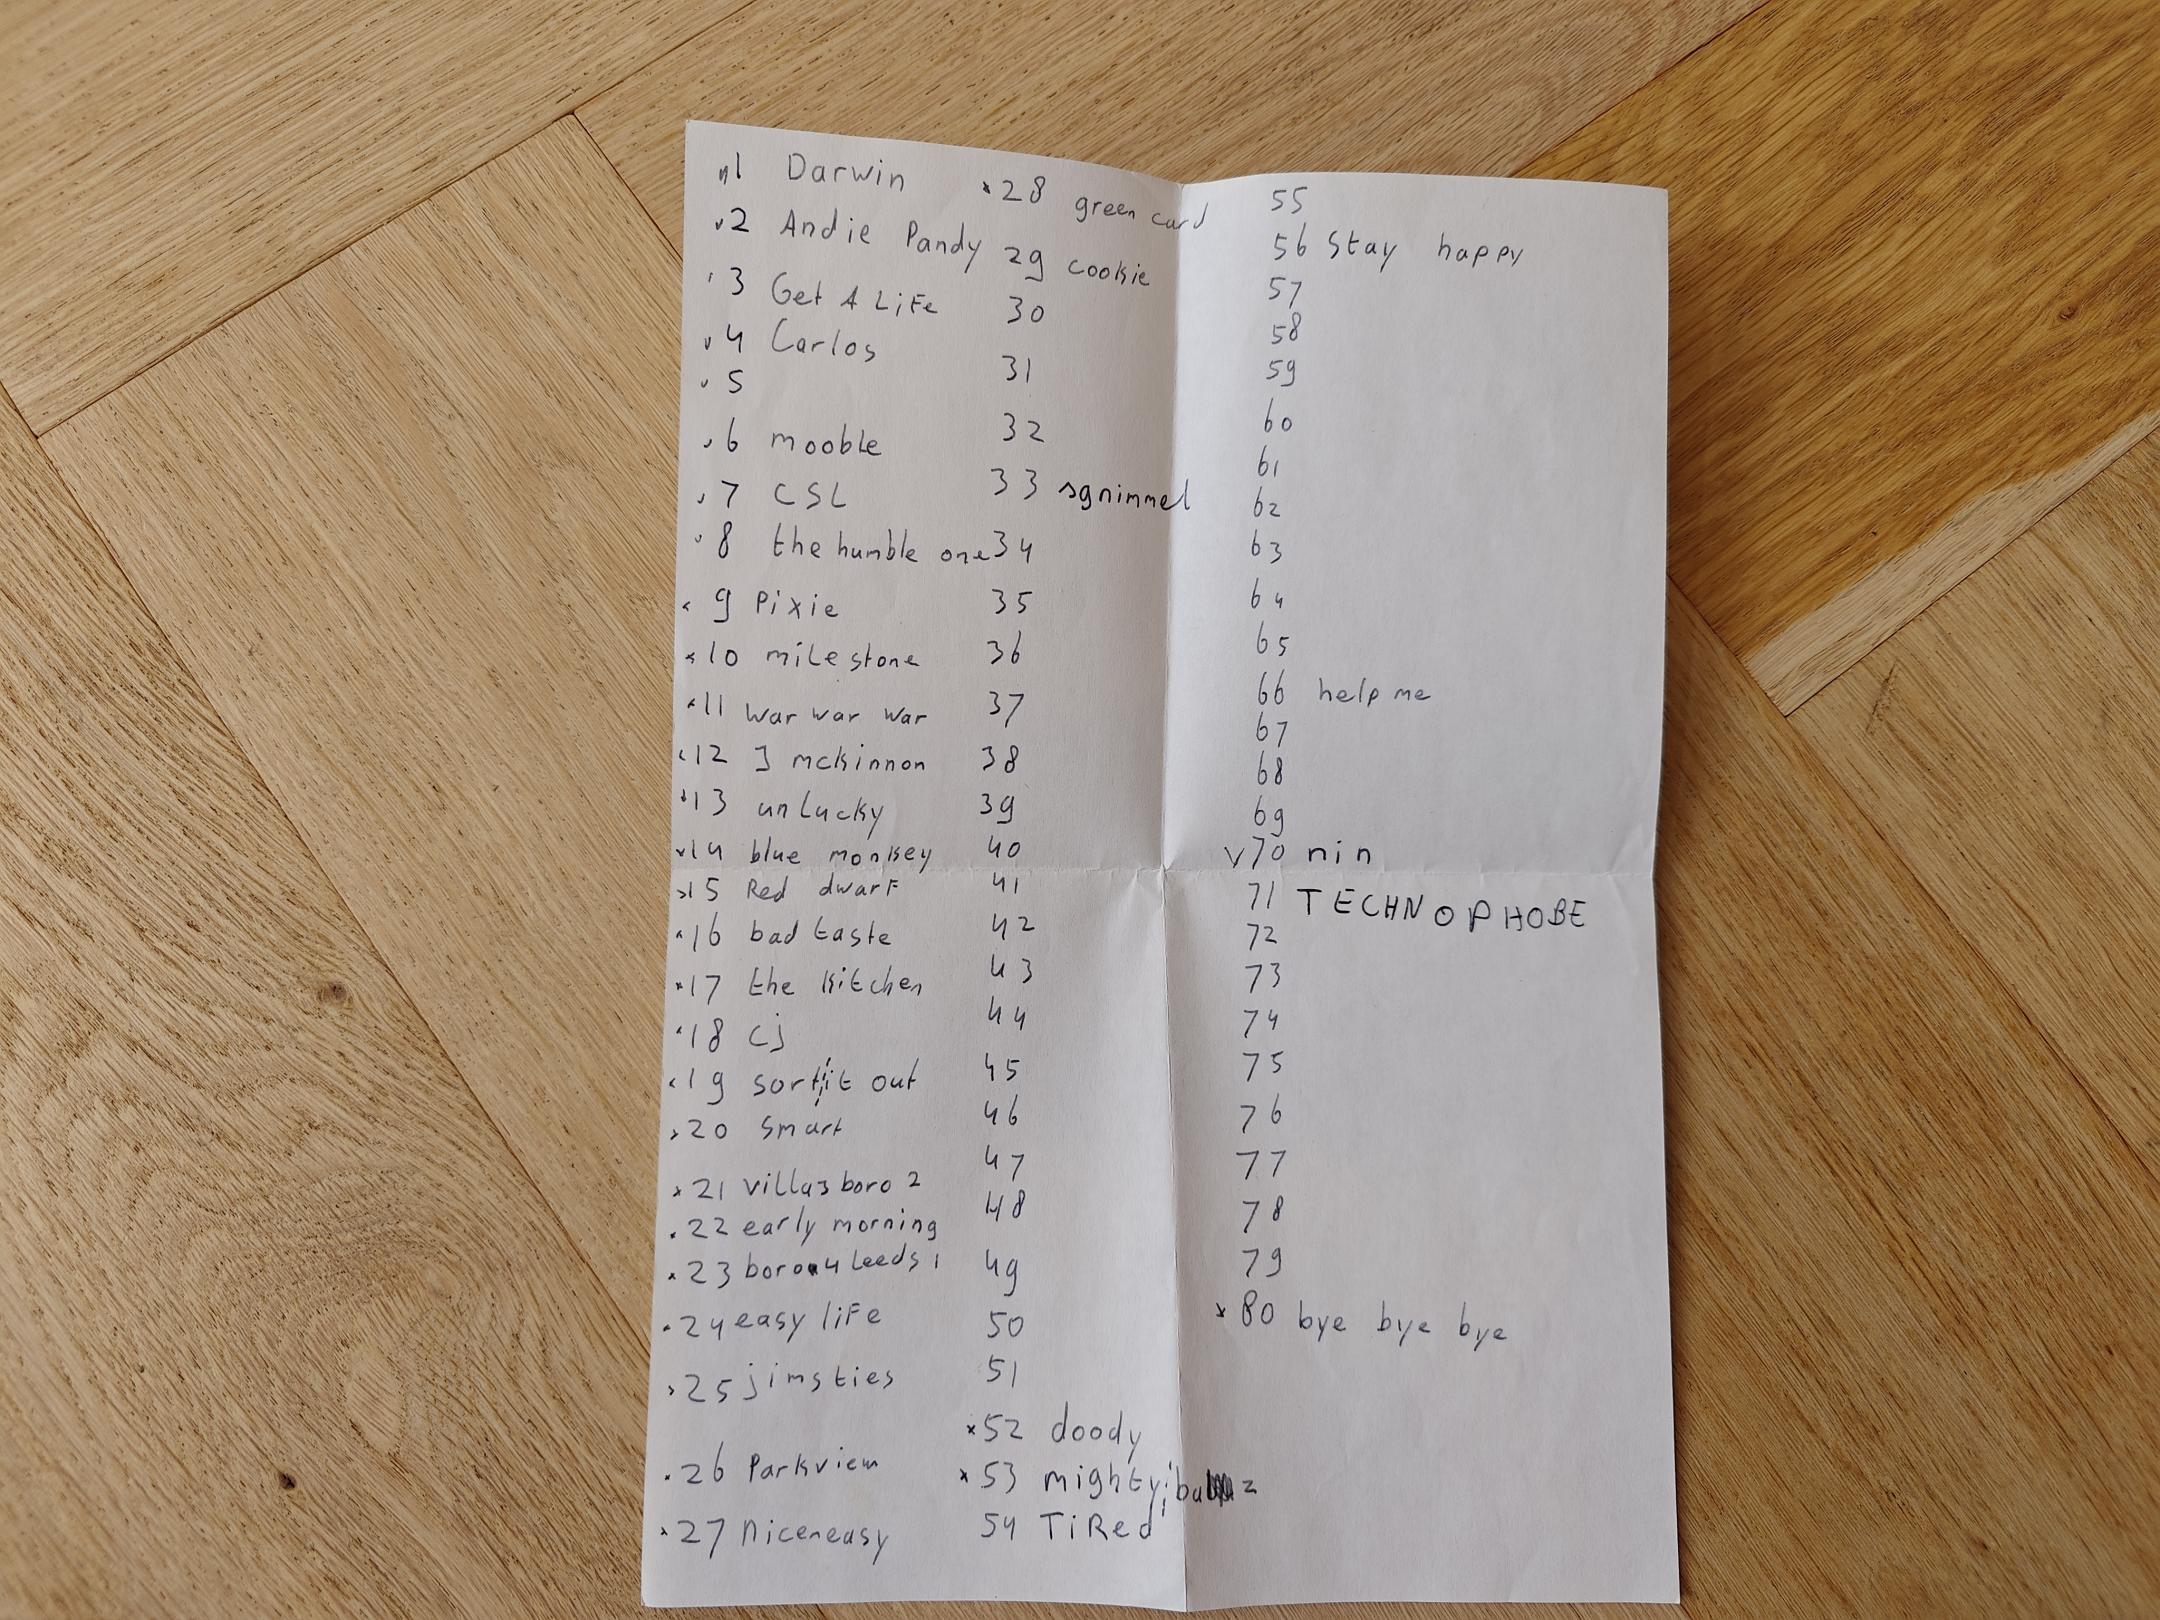 1 Darwin
2 Andie Pandy
3 Get A Life
4 Carlos
5
6 mooble
7 CSL
8 the humble one
9 Pixie
10 milestone
11 war war war
12 J mckinnon
13 unlucky
14 blue monkey
15 Red dwarf
16 bad taste
17 the kitchen
18 cj
19 sort it out
20 smart
21 villa 3 boro 2
22 early morning
23 boro 4 leeds 1
24 easy life
25 jims ties
26 Parkview
27 niceneasy
28 green card
29 cookie
30
31
32
33 sgnimmel
34
35
36
37
38
39
40
41
42
43
44
45
46
47
48
49
50
51
52 doody
53 mighty
54 TiRed
55
56 Stay happy
57
58
59
60
61
62
63
64
65
66 help me
67
68
69
70 nin
71 TECHNOPHOBE
72
73
74
75
76
77
78
79
80 bye bye bye